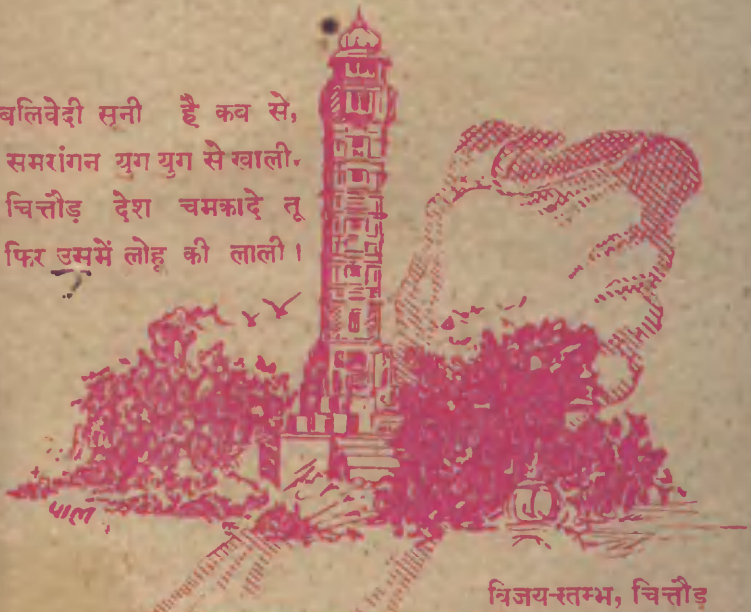 बलिवेदी सूनी है कब से,
समरांगन युग युग से खाली.
चित्तौड़ देश चमकादे तू
फिर उसमें लोहू की लाली।
पाल
विजय-स्तम्भ, चित्तौड़